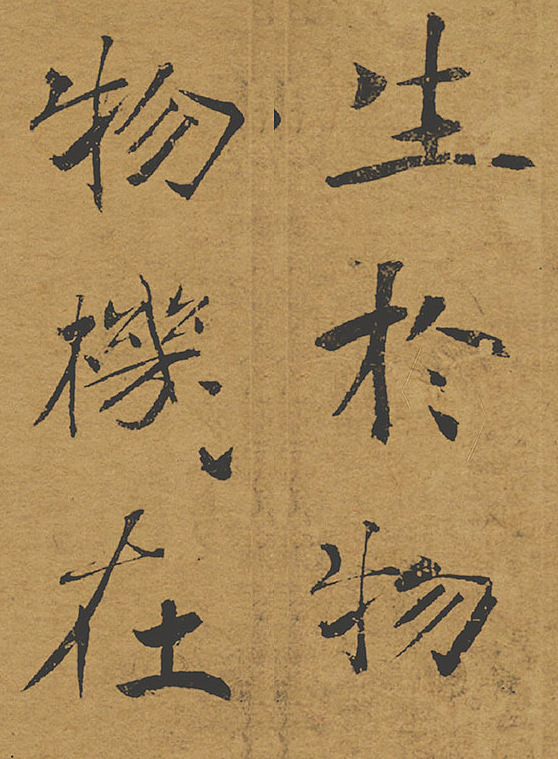 生於物
物機在